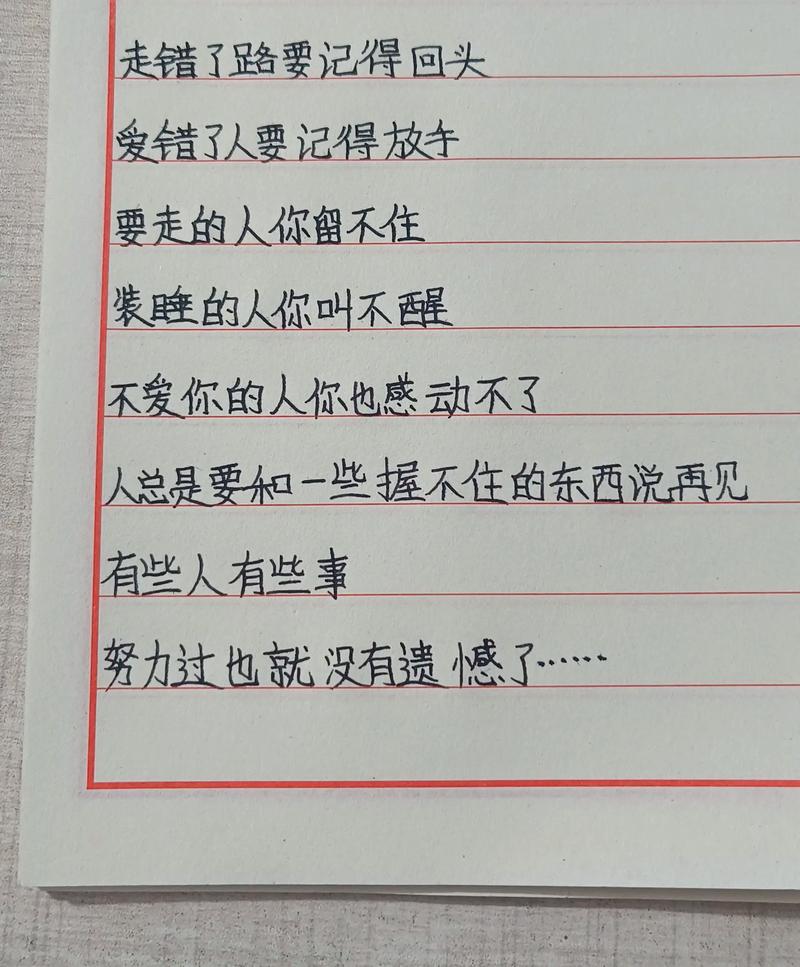 走错了路要记得回头
爱错了人要记得放手
要走的人你留不住
装睡的人你叫不醒
不爱你的人你也感动不了
人总是要和一些握不住的东西说再见
有些人有些事
努力过也就没有遗憾了……